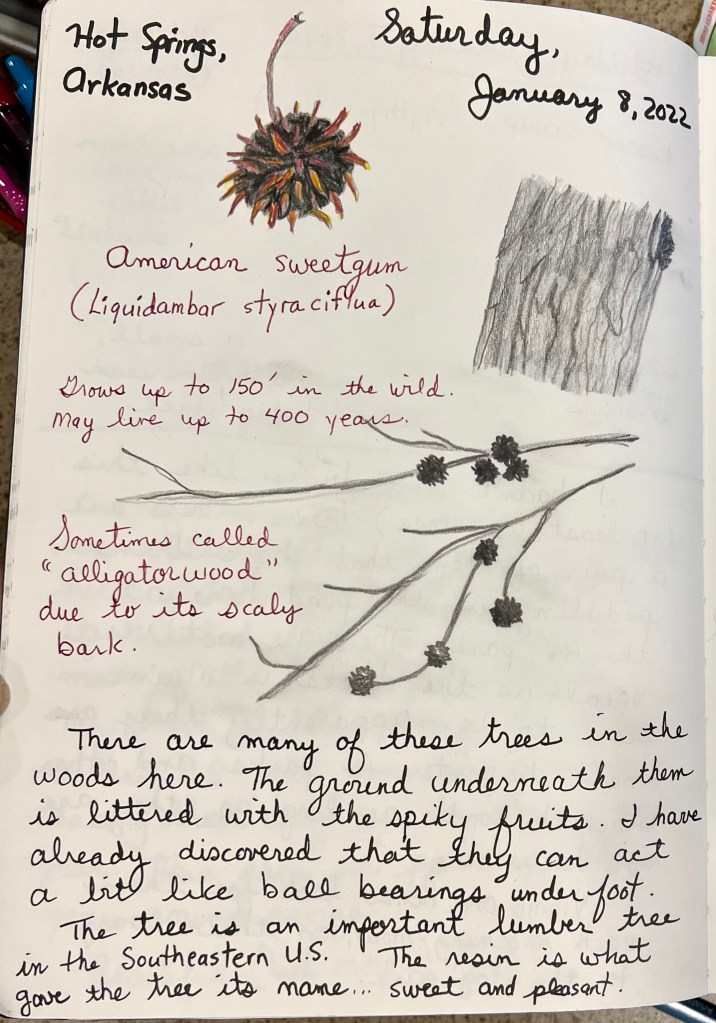 Hot Springs,
Arkansas
Saturday,
January 8, 2022
American sweetgum
(Liquidambar styraciflua)
Grows up to 150' in the wild.
May live up to 400 years.
Sometimes called
"alligatorwood"
due to its scaly
bark.
There are many of these trees in the
woods here. The ground underneath them
is littered with the spiky fruits. I have
already discovered that they can act
a bit like ball bearings under foot.
The tree is an important lumber tree
in the Southeastern U.S. The resin is what
gave the tree its name... sweet and pleasant.